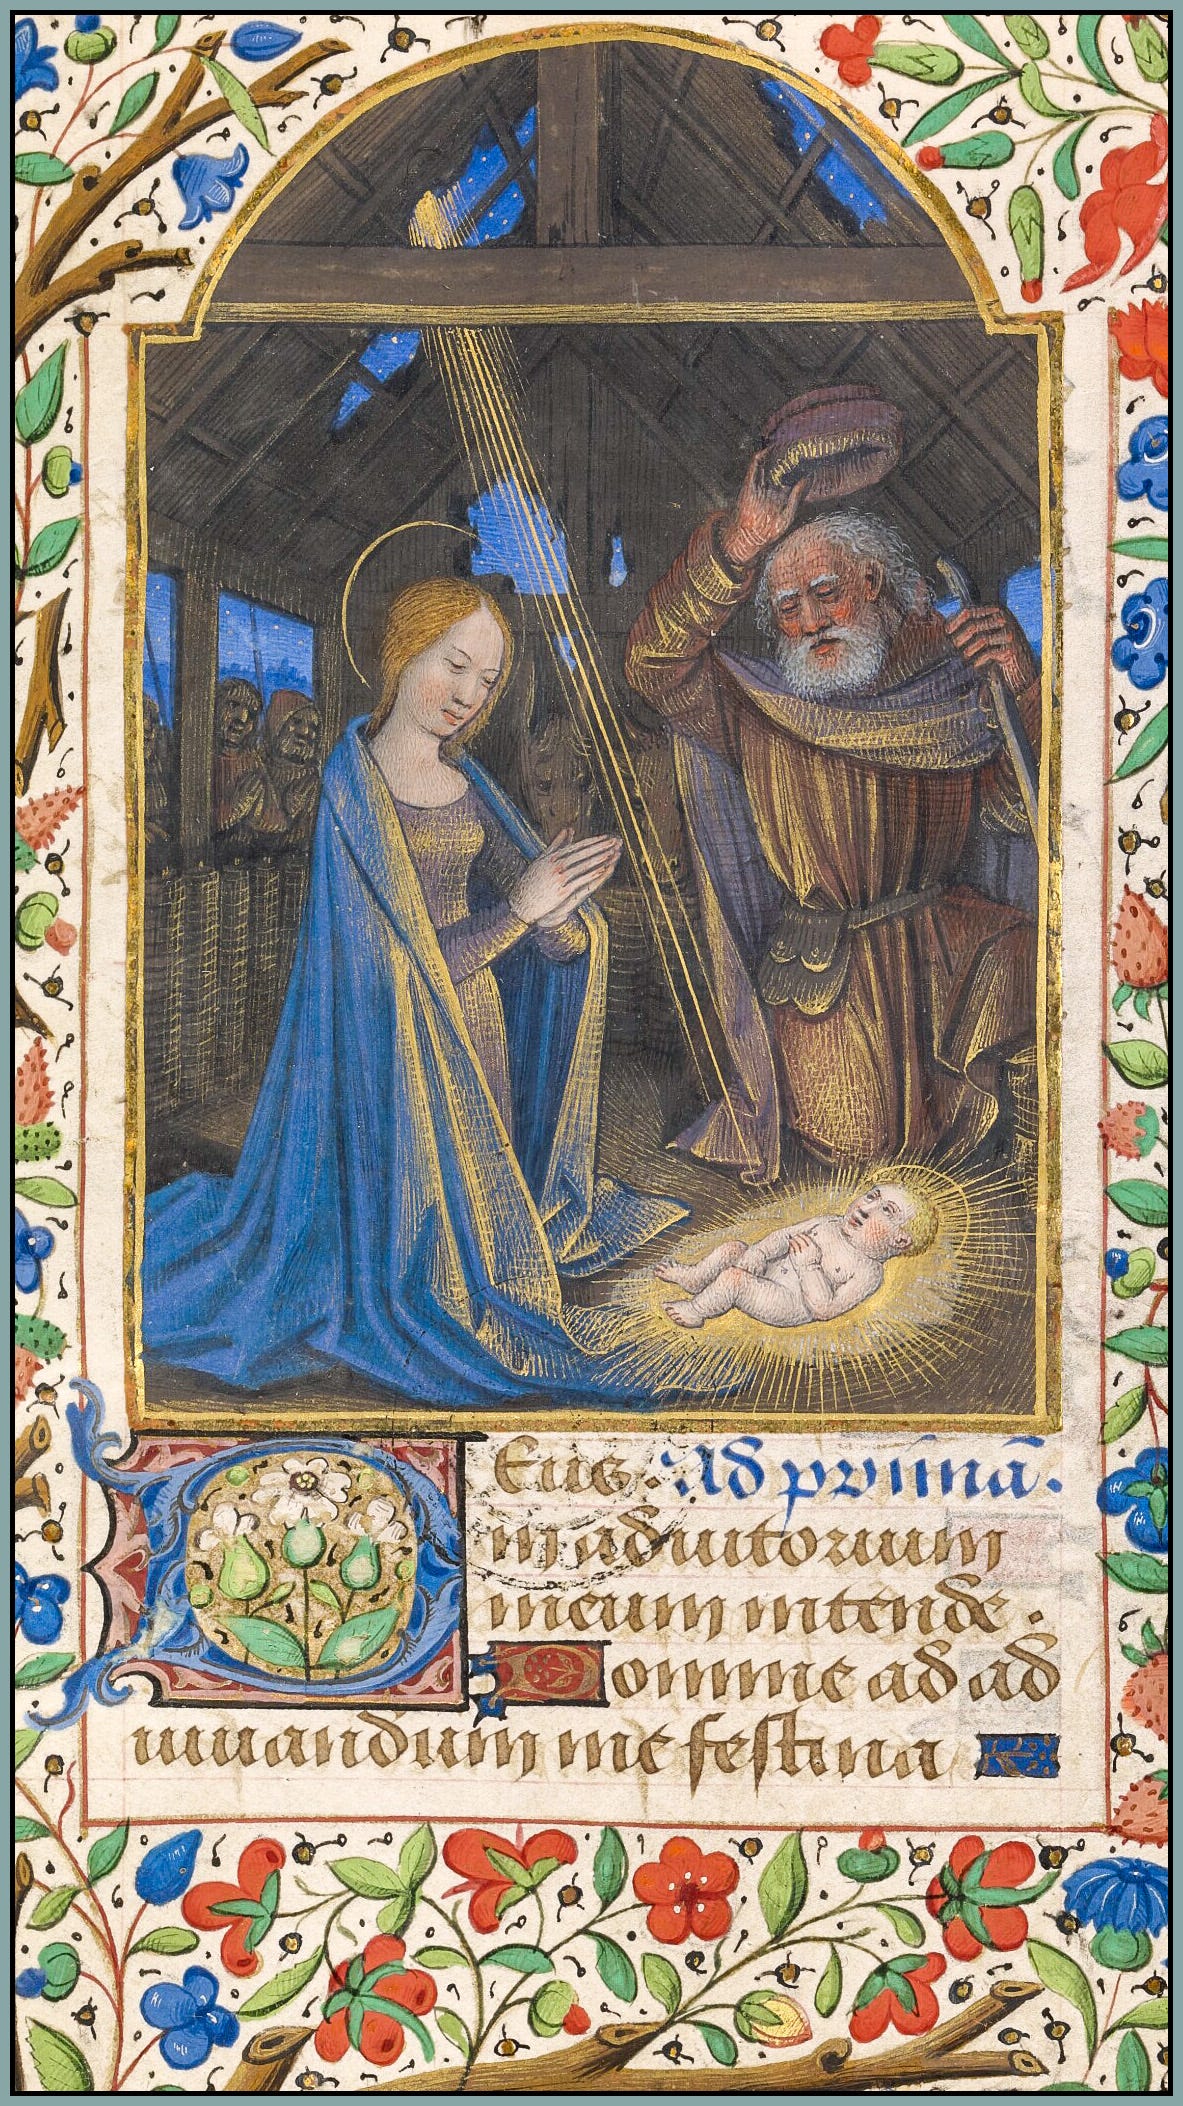 Deus. Ad primā.
in adiutorium
meum intende.
Domine ad ad
iuuandum me festina